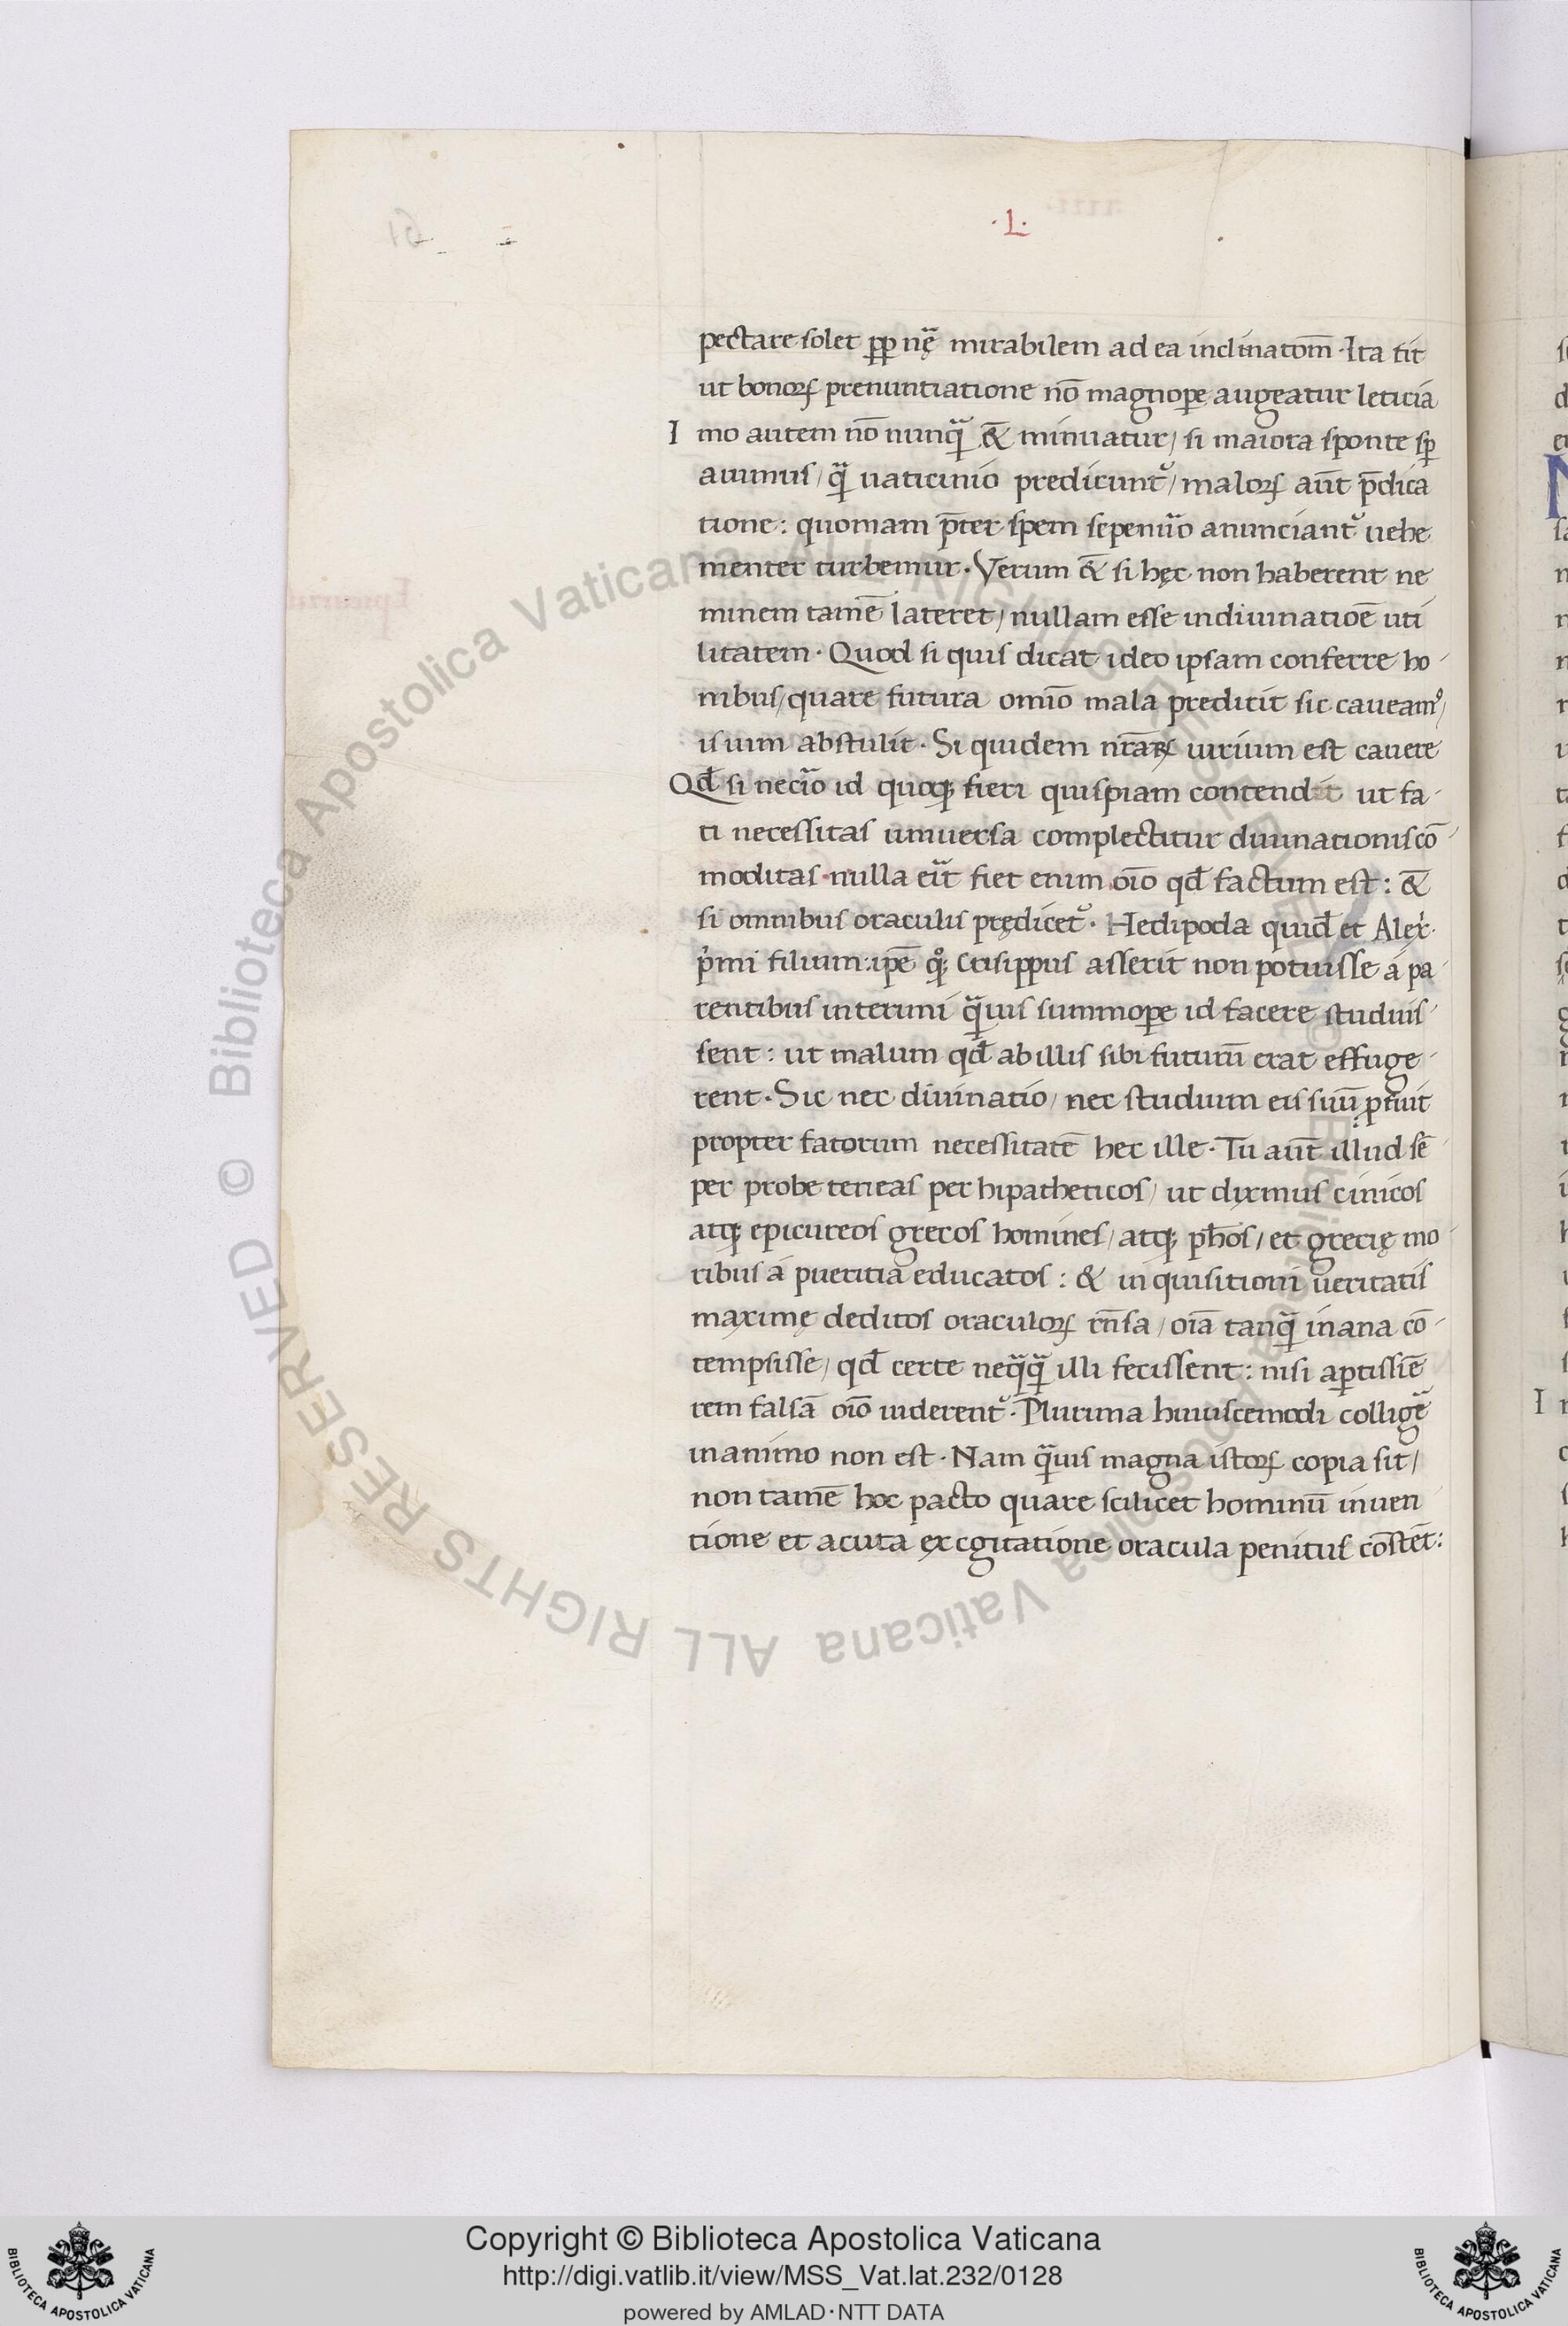 ·L·
pectare solet ꝓp nrę̄ mirabilem ad ea inclinatom̄ · Ita fit
ut bonoꝝ prenuntiatione nō magnoꝑe augeatur leticia
I mo autem nō nunq̄ & minuatur / si maiora sponte sꝑ
auimus / q̄ uaticinio predicunt᷑ / maloꝝ aūt p̄dica
tione : quoniam p̄ter spem sepenūo anunciant᷑ uehe
menter turbemur · Verum & si hęc non haberent ne
minem tamē lateret / nullam esse indiuinatiōe uti
litatem · Quod si quis dicat ideo ipsam conferre ho
nibus / quare futura omīo mala predicit sic caueamꝰ /
is uim abstulit · Si quidem nr̄aꝝ uirium est cauere
Qđ si necīo id quoqꝫ fieri quispiam contendit ut fa
ti necessitas uniuersa complectitur diuinationis cō
moditas · nulla eīt fiet enim oīo qđ factum est : &
si omnibus oraculis prędicet᷑ · Hedipoda quid et Alex̓ ·
p̓mi filium : ipē qꝫ Crisippus asserit non potuisse á pa
rentibus interimi q̄uis summoꝑe id facere studuis
sent : ut malum qđ ab illis sibi futurū erat effuge
rent · Sic nec diuinatio / nec studium eis suū ꝓfuit
propter fatorum necessitatē hec ille · Tu aūt illud sē
per probe teneas per hipatheticos / ut diximus cinicos
atqꝫ epicureos grecos homines / atqꝫ pħos / et grecię mo
ribus á pueritia educatos : & inquisitioni ueritatis
maximę deditos oraculoꝝ rn̄sa / oīa tanq̄ inana cō
tempsisse / qđ certe neq̄q̄ illi fecissent : nisi aꝑtissīe
rem falsā oīo uiderent᷑ · Plurima huiuscemodi colligē
in animo non est · Nam q̄uis magna istoꝝ copia sit /
non tamē hoc pacto quare scilicet hominū inuen
tione et acuta excgitatione oracula penitus cōstēt :
© Biblioteca Apostolica Vaticana ALL RIGHTS RESERVED © Biblioteca Apostolica Vaticana ALL RIGHTS RESERVED
Copyright © Biblioteca Apostolica Vaticana
http://digi.vatlib.it/view/MSS_Vat.lat.232/0128
powered by AMLAD·NTT DATA
BIBLIOTECA APOSTOLICA VATICANA
BIBLIOTECA APOSTOLICA VATICANA